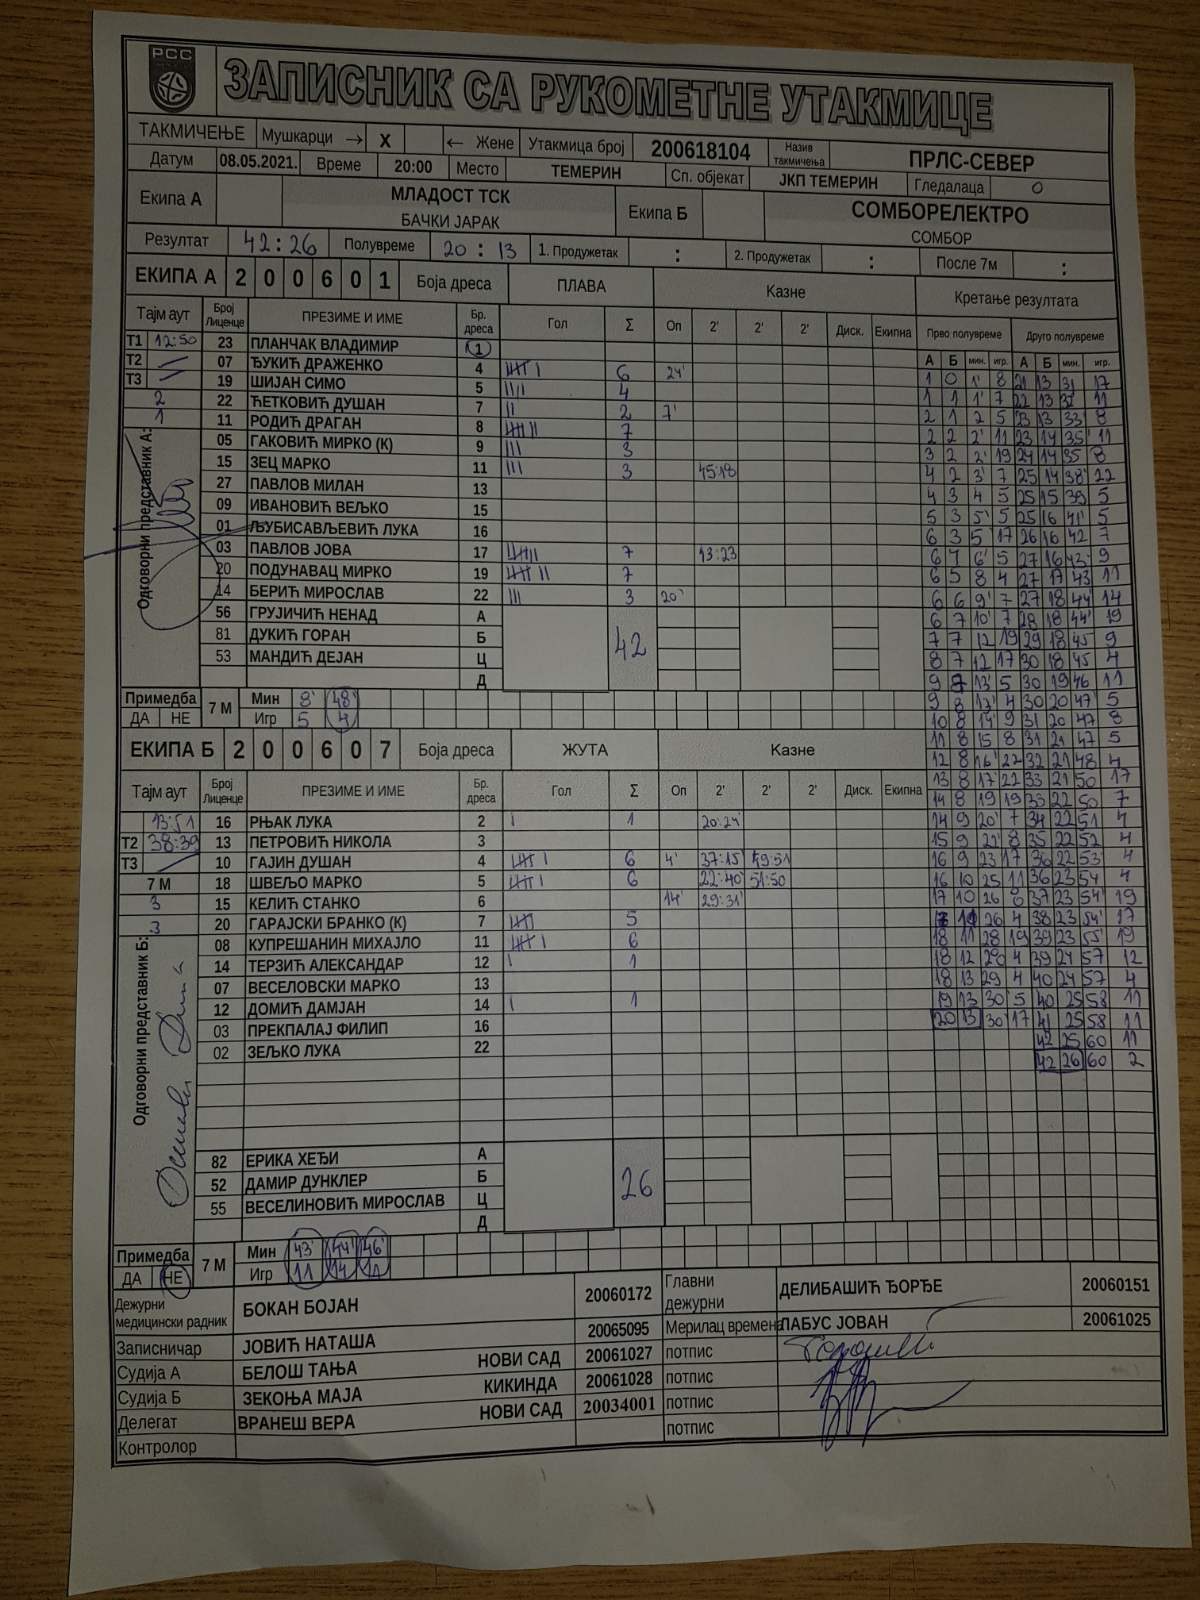 РСС
ЗАПИСНИК СА РУКОМЕТНЕ УТАКМИЦЕ
ТАКМИЧЕЊЕ Мушкарци → X ← Жене Утакмица број 200618104 Назив такмичења ПРЛС-СЕВЕР
Датум 08.05.2021. Време 20:00 Место ТЕМЕРИН Сп. објекат ЈКП ТЕМЕРИН Гледалаца 0
Екипа А МЛАДОСТ ТСК Екипа Б СОМБОРЕЛЕКТРО
БАЧКИ ЈАРАК СОМБОР
Резултат 42:26 Полувреме 20:13 1. Продужетак : 2. Продужетак : После 7м :
ЕКИПА А 2 0 0 6 0 1 Боја дреса ПЛАВА Казне Кретање резултата
Тајм аут Број Лиценце ПРЕЗИМЕ И ИМЕ Бр. дреса Гол Σ Оп 2' 2' 2' Диск. Екипна Прво полувреме Друго полувреме
А Б мин. игр. А Б мин. игр.
Т1 12:50 23 ПЛАНЧАК ВЛАДИМИР 1
Т2 07 ЂУКИЋ ДРАЖЕНКО 4 6 24'
Т3 19 ШИЈАН СИМО 5 4
2 22 ЋЕТКОВИЋ ДУШАН 7 2 7'
1 11 РОДИЋ ДРАГАН 8 7
05 ГАКОВИЋ МИРКО (К) 9 3
15 ЗЕЦ МАРКО 11 3 45:18
27 ПАВЛОВ МИЛАН 13
09 ИВАНОВИЋ ВЕЉКО 15
01 ЉУБИСАВЉЕВИЋ ЛУКА 16
03 ПАВЛОВ ЈОВА 17 7 13:23
20 ПОДУНАВАЦ МИРКО 19 7
14 БЕРИЋ МИРОСЛАВ 22 3 20'
56 ГРУЈИЧИЋ НЕНАД А
81 ДУКИЋ ГОРАН Б 42
53 МАНДИЋ ДЕЈАН Ц
Д
Одговорни представник А:
Примедба 7 М Мин 8' 48'
ДА НЕ Игр 5 4
ЕКИПА Б 2 0 0 6 0 7 Боја дреса ЖУТА Казне
Тајм аут Број Лиценце ПРЕЗИМЕ И ИМЕ Бр. дреса Гол Σ Оп 2' 2' 2' Диск. Екипна
13:51 16 РЊАК ЛУКА 2 1 20:24'
Т2 38:39 13 ПЕТРОВИЋ НИКОЛА 3
Т3 10 ГАЈИН ДУШАН 4 6 4' 37:15' 59:51
7 М 18 ШВЕЉО МАРКО 5 6 22:40' 51:50
3 15 КЕЛИЋ СТАНКО 6 14' 29:31'
3 20 ГАРАЈСКИ БРАНКО (К) 7 5
08 КУПРЕШАНИН МИХАЈЛО 11 6
14 ТЕРЗИЋ АЛЕКСАНДАР 12 1
07 ВЕСЕЛОВСКИ МАРКО 13
12 ДОМИЋ ДАМЈАН 14 1
03 ПРЕКПАЛАЈ ФИЛИП 16
02 ЗЕЉКО ЛУКА 22
82 ЕРИКА ХЕЂИ А
52 ДАМИР ДУНКЛЕР Б 26
55 ВЕСЕЛИНОВИЋ МИРОСЛАВ Ц
Д
Одговорни представник Б:
Примедба 7 М Мин 43' 44' 46'
ДА НЕ Игр 11 14
1 0 1' 8 21 13 31 17
1 1 1' 7 22 13 32 11
2 1 2 5 23 13 33' 8
2 2 2' 11 23 14 35' 11
3 2 2' 19 24 14 35 8
4 2 3' 7 25 14 38' 22
4 3 4 5 25 15 39 5
5 3 5' 5 25 16 41' 5
6 3 5' 17 26 16 42 7
6 4 6' 5 27 16 43' 9
6 5 8 4 27 17 43 11
6 6 9' 7 27 18 44' 14
6 7 10' 7 28 18 44' 19
7 7 12 19 29 18 45 9
8 7 12 17 30 18 45 4
9 7 13' 5 30 19 46 11
9 8 13' 4 30 20 47' 5
10 8 14' 9 31 20 47 8
11 8 15 8 31 21 47 5
12 8 16' 22 32 21 48 4
13 8 17' 22 33 21 50 17
14 8 19 19 33 22 50 7
14 9 20' 7 34 22 51 4
15 9 22' 8 35 22 52 4
16 9 23 17 36 22 53' 4
16 10 25 11 36 23 54 4
17 10 26 8 37 23 54' 19
11 26 4 38 23 54' 17
18 11 28 19 39 23 55' 19
18 12 4 39 24 57 12
18 13 29 4 40 24 57 4
19 13 30 5 40 25 58 11
20 13 30' 17 41 25 58 11
42 25 60 11
42 26 60 2
Дежурни медицински радник БОКАН БОЈАН 20060172 Главни дежурни ДЕЛИБАШИЋ ЂОРЂЕ 20060151
Записничар ЈОВИЋ НАТАША 20065095 Мерилац времена ЛАБУС ЈОВАН 20061025
Судија А БЕЛОШ ТАЊА НОВИ САД 20061027 потпис
Судија Б ЗЕКОЊА МАЈА КИКИНДА 20061028 потпис
Делегат ВРАНЕШ ВЕРА НОВИ САД 20034001 потпис
Контролор потпис